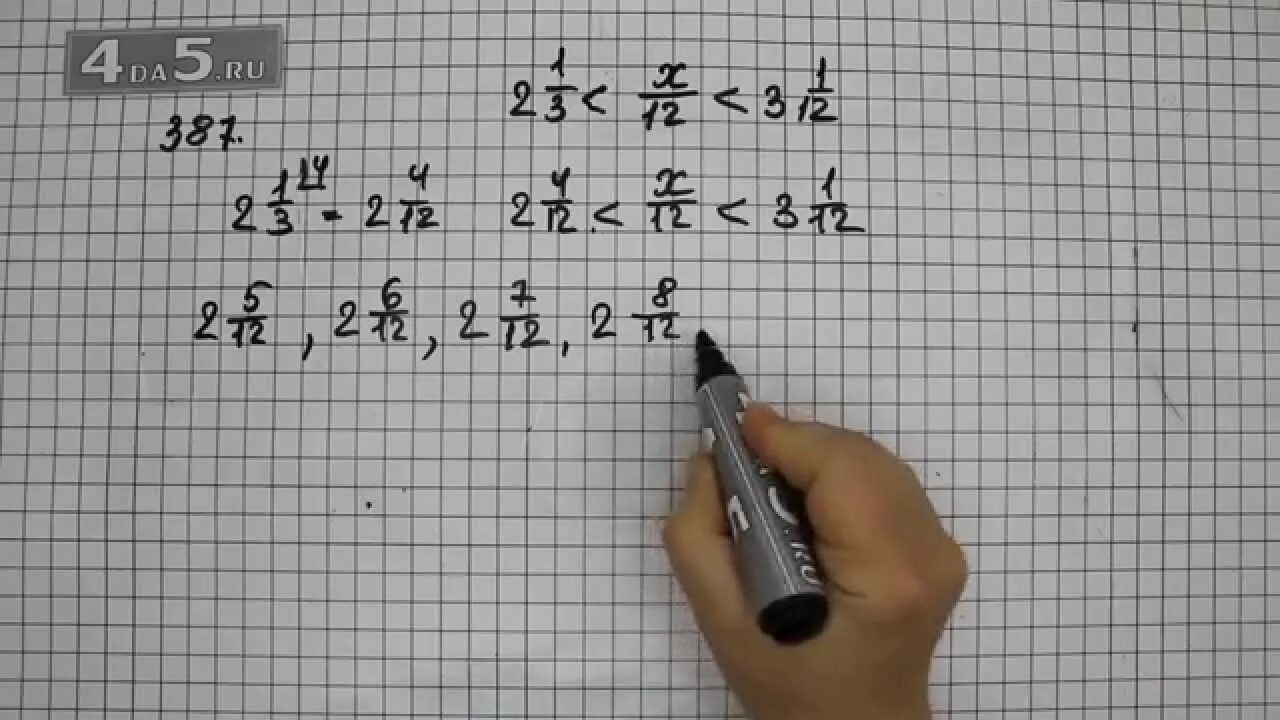 4DA5.RU
2 1/3 < x/12 < 3 1/12
387.
2 1/3 |4 = 2 4/12 2 4/12 < x/12 < 3 1/12
2 5/12 , 2 6/12 , 2 7/12 , 2 8/12
.RU